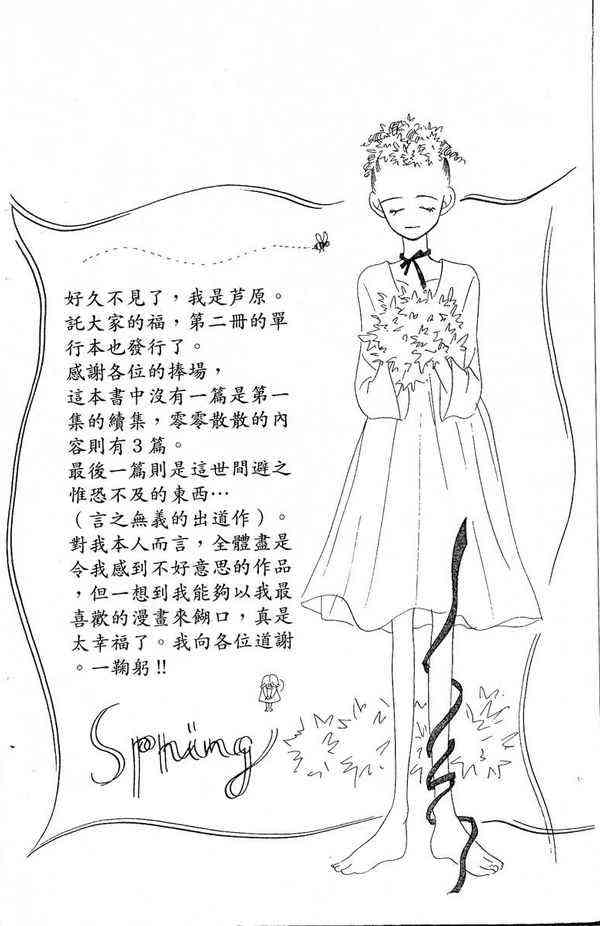 好久不見了，我是芦原。
託大家的福，第二冊的單
行本也發行了。
感謝各位的捧場，
這本書中沒有一篇是第一
集的續集，零零散散的內
容則有3篇。
最後一篇則是這世間避之
惟恐不及的東西…
（言之無義的出道作）。
對我本人而言，全體盡是
令我感到不好意思的作品
，但一想到我能夠以我最
喜歡的漫畫來餬口，真是
太幸福了。我向各位道謝
。一鞠躬!!